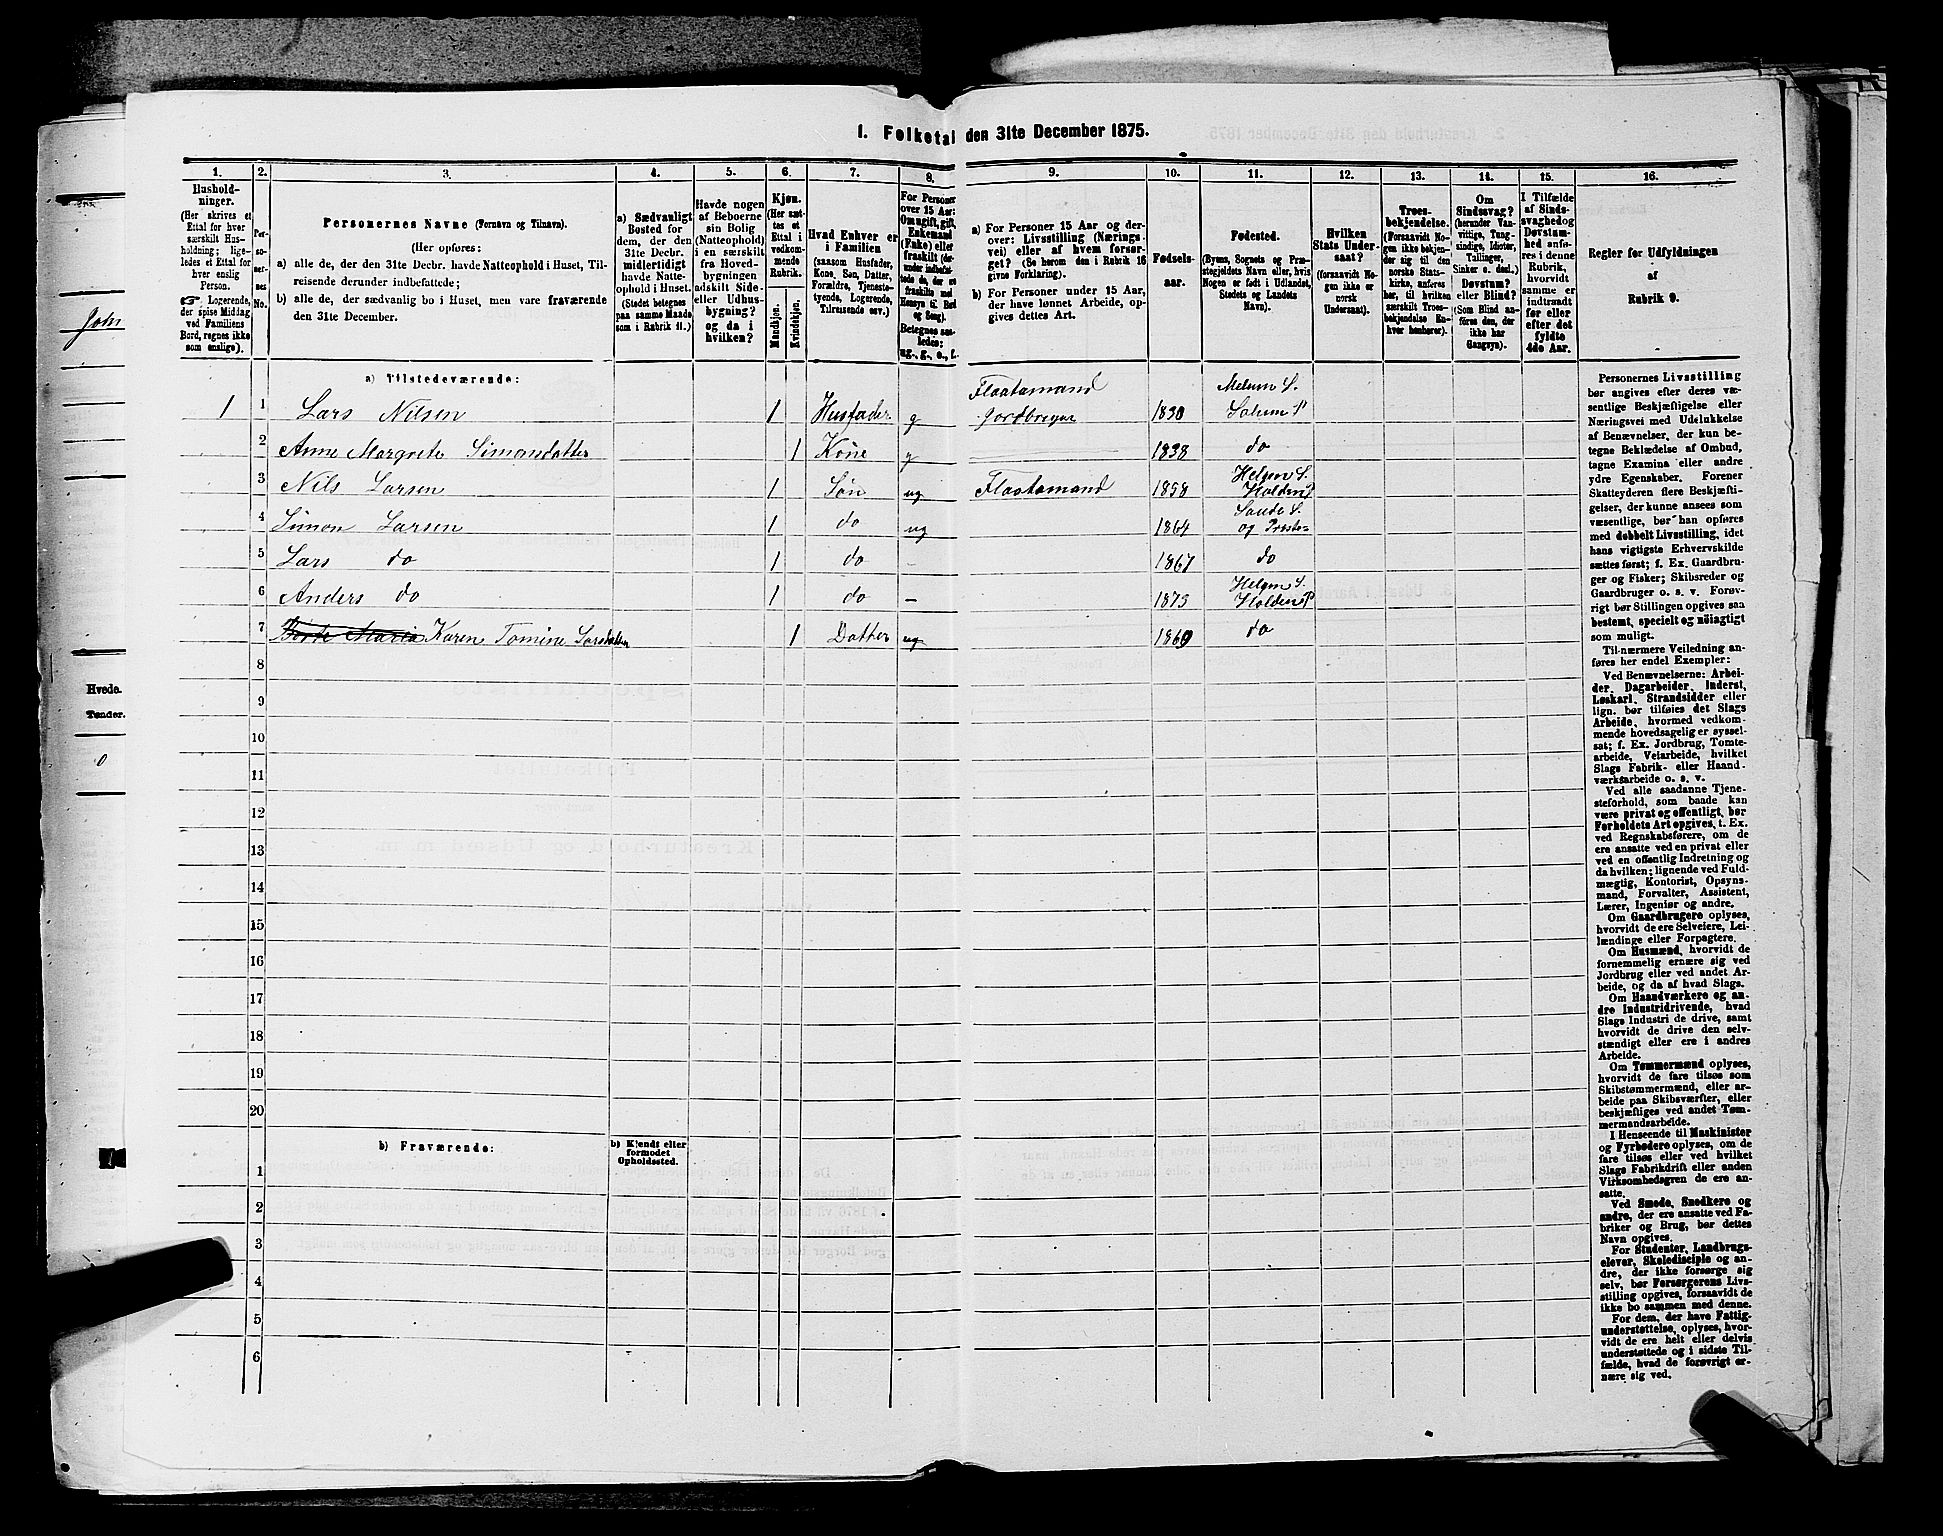 1. Folketal den 31te December 1875.
1. 2. 3. 4. 5. 6. 7. 8. 9. 10. 11. 12. 13. 14. 15. 16.
Hushold-
ninger.
(Her skrives et
Ettal for hver
særskilt Hus-
holdning; lige-
ledes et Ettal for
hver enslig
Person.
☞ Logerende,
der spise Middag
ved Familiens
Bord, regnes ikke
som enslige).
Per-
so-
ner-
nes
No.
Personernes Navne (Fornavn og Tilnavn).
(Her opføres:
a) alle de, der den 31te Decbr. havde Natteophold i Huset, Til-
reisende derunder indbefattede;
b) alle de, der sædvanlig bo i Huset, men vare fraværende
den 31te December.
a) Sædvanligt
Bosted for
dem, der den
31te Decbr.
midlertidigt
havde Natte-
ophold i Huset.
(Stedet betegnes
paa samme Maade
som i Rubrik 11.)
Havde nogen
af Beboerne
sin Bolig
(Natteophold)
i en særskilt
fra Hoved-
bygningen
adskilt Side-
eller Udhus-
bygning?
og da i
hvilken?
Kjøn.
(Her sæt-
tes et
Ettal i
vedkom-
mende
Rubrik.
Mandkjøn.
Kvindekjøn.
Hvad Enhver er
i Familien
(saasom Husfader,
Kone, Søn, Datter,
Forældre, Tjeneste-
tyende, Logerende,
Tilreisende osv.)
For Personer
over 15 Aar:
Om ugift, gift,
Enkemand
(Enke) eller
fraskilt
Betegnes saa-
ledes:
ug., g., e., f.
a) For Personer 15 Aar og der-
over: Livsstilling (Nærings-
vei) eller af hvem forsør-
get? (Se herom den i Rubrik 16
givne Forklaring).
b) For Personer under 15 Aar,
der have lønnet Arbeide, op-
gives dettes Art.
Fødsels-
aar.
Fødested.
(Byens, Sognets og Præ-
stegjeldets Navn eller, hvis
Nogen er født i Udlandet,
Stedets og Landets
Navn).
Hvilken
Stats Under-
saat?
(forsaavidt No-
gen ikke er
norsk
Undersaat).
Troes-
bekjendelse.
(Forsaavidt No-
gen ikke bekjen-
der sig til den
norske Stats-
kirke, anføres
her, til hvilken
særskilt Troes-
bekjendelse En-
hver henhører).
Om
Sindssvag?
(herunder Van-
vittige, Tung-
sindige, Idioter,
Tallinger,
Sinker o. desl.)
Døvstum?
eller Blind?
(Som Blind an-
føres den, der
ikke har
Gangsyn).
I Tilfælde
af Sinds-
svaghed og
Døvstum-
hed anfø-
res i denne
Rubrik,
hvorvidt
samme er
indtraadt
før eller
efter det
fyldte
4de Aar.
Regler for Udfyldningen
af
Rubrik 9.
a) Tilstedeværende:
1 1 Lars Nilsen 1 Husfader g Flaatamand Jordbruger 1830 Melum S. Solum P
2 Anne Margrete Simonsdatter 1 Kone g 1838 do
3 Nils Larsen 1 Søn ug Flaatamand 1858 Helgen S. Holden P
4 Simon Larsen 1 do ug 1864 Saude S. og Præste=
5 Lars do 1 do - 1867 do
6 Anders do 1 do - 1873 Helgen S. Holden P
7 Karen Tomine Larsdatter 1 Datter ug 1860 do
8
9
10
11
12
13
14
15
16
17
18
19
20
b) Fraværende:
b) Kjendt eller
formodet
Opholdssted.
1
2
3
4
5
6
Personernes Livsstilling
bør angives efter deres væ-
sentlige Beskjæftigelse eller
Næringsvei med Udelukkelse
af Benævnelser, der kun be-
tegne Beklædelse af Ombud,
tagne Examina eller andre
ydre Egenskaber. Forener
Skatteyderen flere Beskjæfti-
gelser, der kunne ansees som
væsentlige, bør han opføres
med dobbelt Livsstilling, idet
hans vigtigste Erhvervskilde
sættes først; f. Ex. Gaardbru-
ger og Fisker; Skibsreder og
Gaardbruger o. s. v. Forøv-
rigt bør Stillingen opgives saa
bestemt, specielt og nöiagtigt
som muligt.
Til nærmere Veiledning an-
føres her endel Exempler:
Ved Benævnelserne: Arbei-
der, Dagarbeider, Inderst,
Løskarl, Strandsidder eller
lign. bør tilføies det Slags
Arbeide, hvormed vedkom-
mende hovedsagelig er syssel-
sat; f. Ex. Jordbrug, Tomte-
arbeide, Veiarbeide, hvilket
Slags Fabrik- eller Haand-
værksarbeide o. s. v.
Ved alle saadanne Tjene-
steforhold, som baade kan
være privat og offentligt, bør
Forholdets Art opgives, f. Ex.
ved Regnskabsførere, om de
ere ansatte ved en privat eller
ved en offentlig Indretning og
da hvilken; lignende ved Fuld-
mægtig, Kontorist, Opsyns-
mand, Forvalter, Assistent,
Lærer, Ingeniør og andre.
Om Gaardbrugere oplyses,
hvorvidt de ere Selveiere, Lei-
lændinge eller Forpagtere.
Om Husmænd, hvorvidt de
fornemmelig ernære sig ved
Jordbrug eller ved andet Ar-
beide, og da af hvad Slags.
Om Haandværkere og an-
dre Industridrivende, hvad
Slags Industri de drive, samt
hvorvidt de drive den selv-
stændigt eller ere i andres
Arbeide.
Om Tømmermænd oplyses,
hvorvidt de fare tilsøs som
Skibstømmermænd, eller ar-
beide paa Skibsværfter, eller
beskjæftiges ved andet Tøm-
mermandsarbeide.
I Henseende til Maskinister
og Fyrbødere oplyses, om de
fare tilsøs eller ved hvilket
Slags Fabrikdrift eller anden
Virksomhedsgren de ere an-
satte.
Ved Smede, Snedkere og
andre, der ere ansatte ved Fa-
briker og Brug, bør dettes
Navn opgives.
For Studenter, Landbrugs-
elever, Skoledisciple og an-
dre, der ikke forsørge sig
selv, bør Forsørgerens Livs-
stilling opgives, forsaavidt de
ikke bo sammen med denne.
For dem, der have Fattig-
understøttelse, oplyses, hvor-
vidt de ere helt eller delvis
understøttede og i sidste Til-
fælde, hvad de forøvrigt er-
nære sig ved.
Hvede.
Tønder.
0